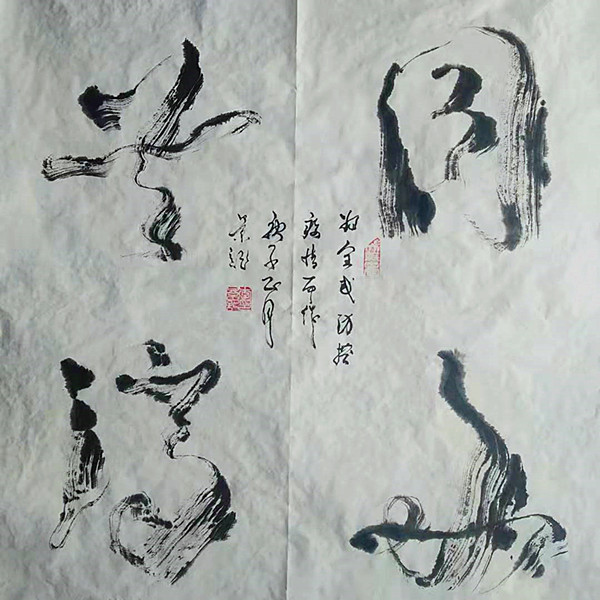 同舟
共济
为全民防控
疫情而作
庚子正月
景